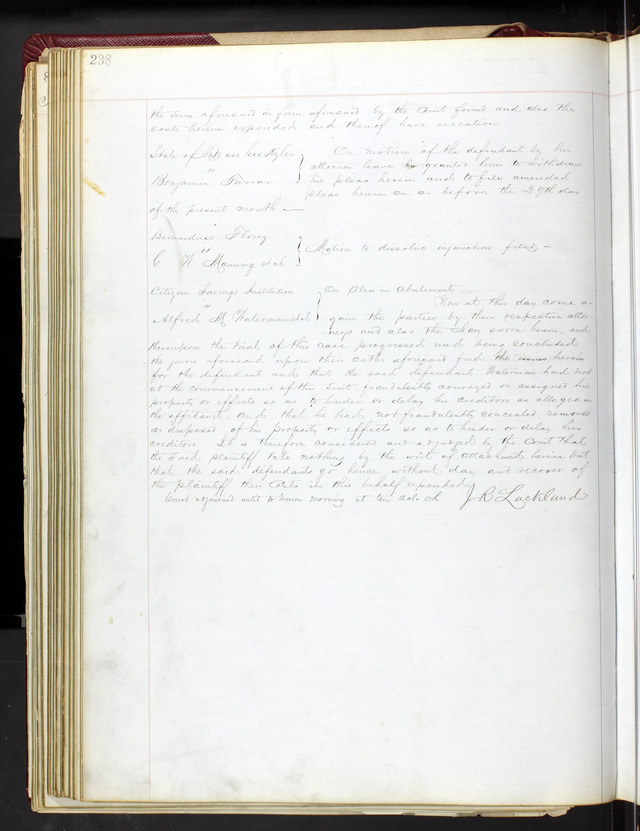 238
the sum aforesaid in form aforesaid by the Court found and also the
costs herein expended and thereof have execution
State of Mo to use Geo Styles
vs
Benjamin Farrar
On motion of the defendant by his
attorney leave is granted him to withdraw
his pleas herein and to file amended
pleas herein on or before the 29th day
of the present month
Florez
vs
C. W. Manning et al
Motion to dissolve injunction filed
Citizens Savings Institution
vs
Alfred M Waterman et al
On Plea in Abatement
Now at this day come a-
gain the parties by their respective attor-
neys and also the Jury sworn herein, and
thereupon the trial of this case progressed and being concluded
the jurors aforesaid upon their oaths aforesaid find the issues herein
for the defendant and that the said defendant Waterman had not
at the commencement of this Suit fraudulently conveyed or assigned his
property or effects so as to hinder or delay his creditors as alleged in
the affidavit and that he had not fraudulently concealed removed
or disposed of his property or effects so as to hinder or delay his
creditors It is therefore considered and adjudged by the Court that
the said plaintiff take nothing by the writ of attachment herein but
that the said defendants go hence without day and recover of
the plaintiff their Costs in this behalf expended
Court adjourned until to morrow morning at ten oclock
J R Lackland